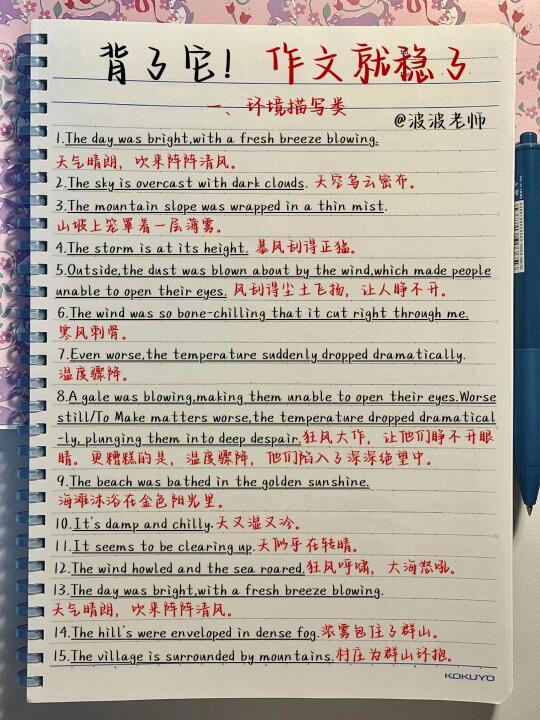 背了它! 作文就稳了
一、环境描写类
@波波老师
1.The day was bright,with a fresh breeze blowing.
天气晴朗，吹来阵阵清风。
2.The sky is overcast with dark clouds. 天空乌云密布。
3.The mountain slope was wrapped in a thin mist.
山坡上笼罩着一层薄雾。
4.The storm is at its height. 暴风刮得正猛。
5.Outside,the dust was blown about by the wind,which made people
unable to open their eyes. 风刮得尘土飞扬，让人睁不开。
6.The wind was so bone-chilling that it cut right through me.
寒风刺骨。
7.Even worse,the temperature suddenly dropped dramatically.
温度骤降。
8.A gale was blowing,making them unable to open their eyes.Worse
still/To Make matters worse,the temperature dropped dramatical
-ly, plunging them into deep despair.狂风大作，让他们睁不开眼
睛。更糟糕的是，温度骤降，他们陷入了深深绝望中。
9.The beach was bathed in the golden sunshine.
海滩沐浴在金色阳光里。
10.It's damp and chilly.天又湿又冷。
11.It seems to be clearing up.天似乎在转晴。
12.The wind howled and the sea roared.狂风呼啸，大海怒吼。
13.The day was bright,with a fresh breeze blowing.
天气晴朗，吹来阵阵清风。
14.The hill's were enveloped in dense fog.浓雾包住了群山。
15.The village is surrounded by mountains.村庄为群山环抱。
KOKUYO